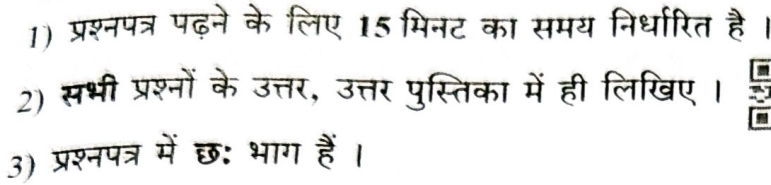 1) प्रश्नपत्र पढ़ने के लिए 15 मिनट का समय निर्धारित है ।
2) सभी प्रश्नों के उत्तर, उत्तर पुस्तिका में ही लिखिए ।
3) प्रश्नपत्र में छः भाग हैं ।